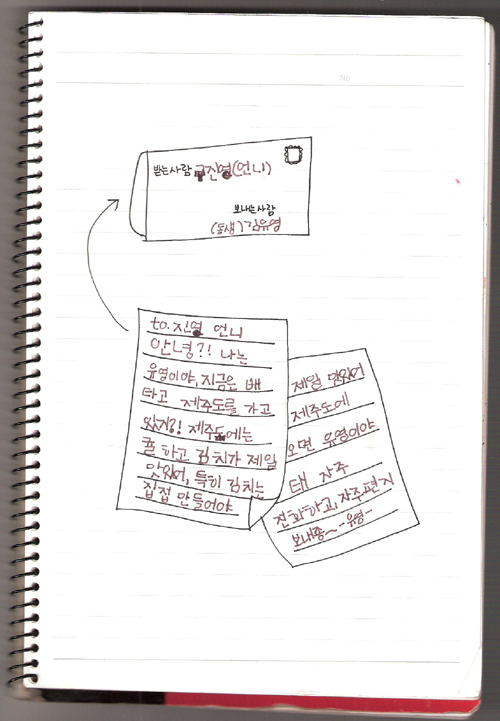 No
받는사람 구진영(언니)
보내는사람
(동생)김유영
to. 진영 언니
안녕?! 나는
유영이야, 지금은 배
타고 제주도를 가고
있지?! 제주도에는
귤 하고 김치가 제일
맛있어, 특히 김치는
집접 만들어야
제일 맛있어
제주도에
오면 유영이야
태 자주
전화하고, 자주편지
보내줭~ -유영-